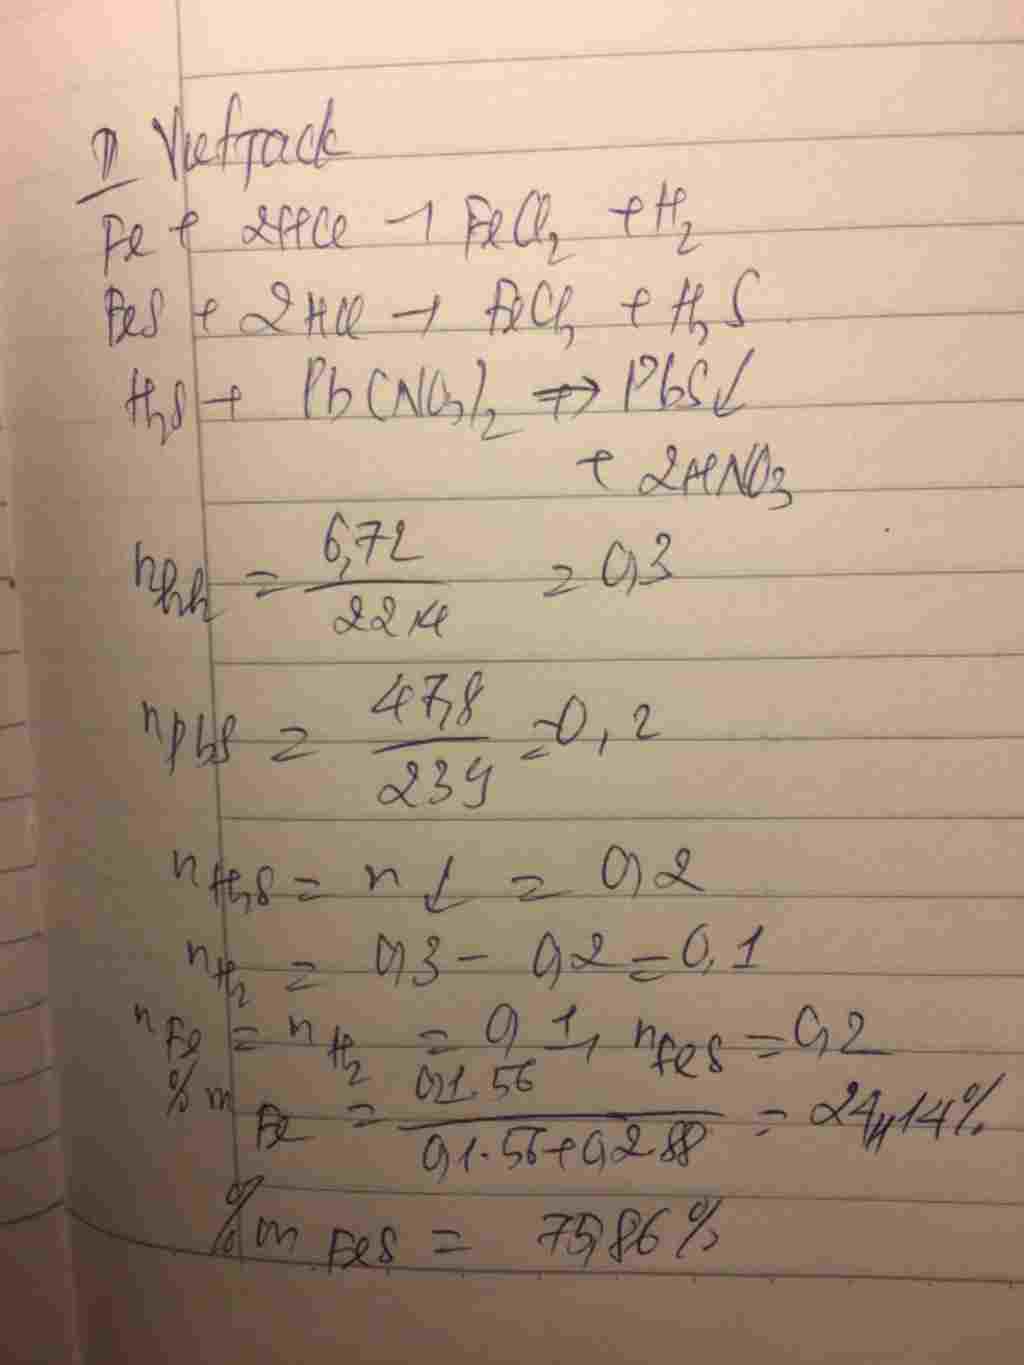 1) VietJack
Fe + 2HCl → FeCl2 + H2
FeS + 2HCl → FeCl2 + H2S
H2S + Pb(NO3)2 → PbS↓
+ 2HNO3
nhh = 6,72/22,4 = 0,3
nPbS = 47,8/239 = 0,2
nH2S = n↓ = 0,2
nH2 = 0,3 - 0,2 = 0,1
nFe = nH2 = 0,1, nFeS = 0,2
%mFe = 0,1.56/0,1.56+0,2.88 = 24,14%
%mFeS = 75,86%